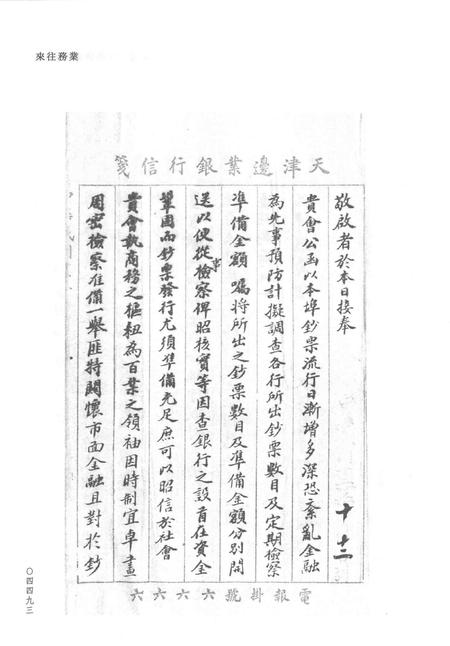 來往務業
天津邊業銀行信箋
敬啟者於本日接奉
十 十二
貴會公函以本埠鈔票流行日漸增多深恐紊亂金融
為先事預防計擬調查各行所出鈔票數目及定期檢察
準備金額囑將所出之鈔票數目及準備金額分別開
送以便從事檢察俾昭核實等因查銀行之設首在資金
鞏固而鈔票發行尤須準備充足庶可以昭信於社會
貴會執商務之樞紐為百業之領袖因時制宜卓畫
周密檢察准備一舉匪特關懷市面金融且對於鈔
電報掛號六六六六
〇四四九三